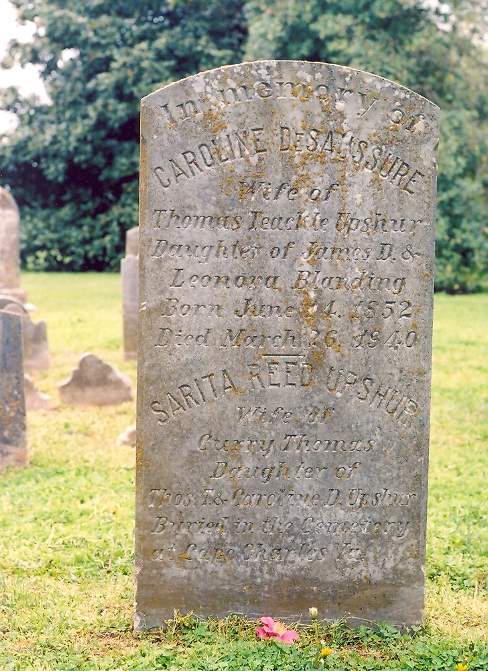 In memory of
CAROLINE DESAUSSURE
Wife of
Thomas Teackle Upshur
Daughter of James D. &
Leonora Blanding
Born June 24. 1852
Died March 26. 1940
SARITA REED UPSHUR
Wife of
Curry Thomas
Daughter of
Thos. T. & Caroline D. Upshur
Buried in the Cemetery
at Cape Charles Va.